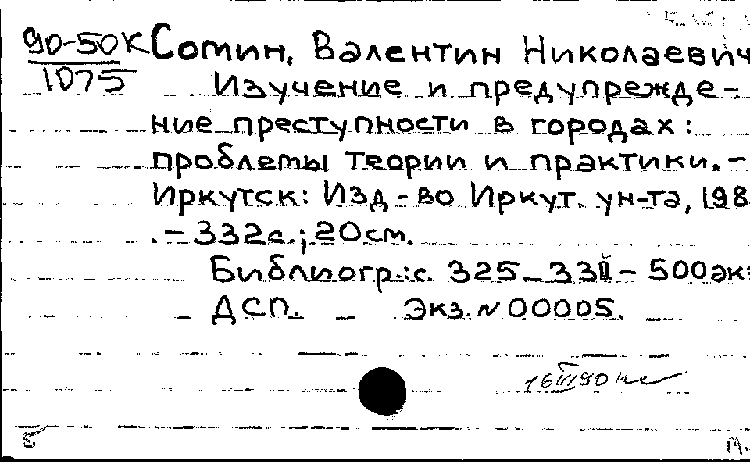 90-50К Сомин, Валентин Николаевич
1075 Изучение и предупрежде-
ние преступности в городах:
проблемы теории и практики. -
Иркутск: Изд-во Иркут. ун-та, 198
. - 332с.; 20см.
Библиогр.: с. 325-331 - 500экз
- ДСП. - Экз. № 00005.
16 III 90